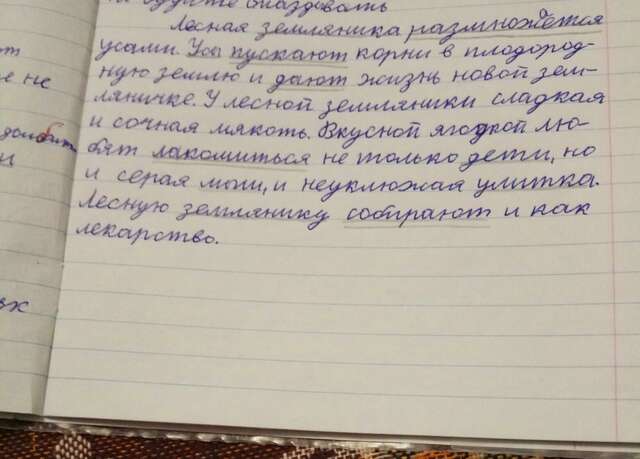 будите опаздовать
Лесная земляника размножается
усами. Усы пускают корни в плодород-
ную землю и дают жизнь новой зем-
ляничке. У лесной земляники сладкая
и сочная мякоть. Вкусной ягодкой лю-
бят лакомиться не только дети, но
и серая мыш, и неуклюжая улитка.
Лесную землянику собирают и как
лекарство.